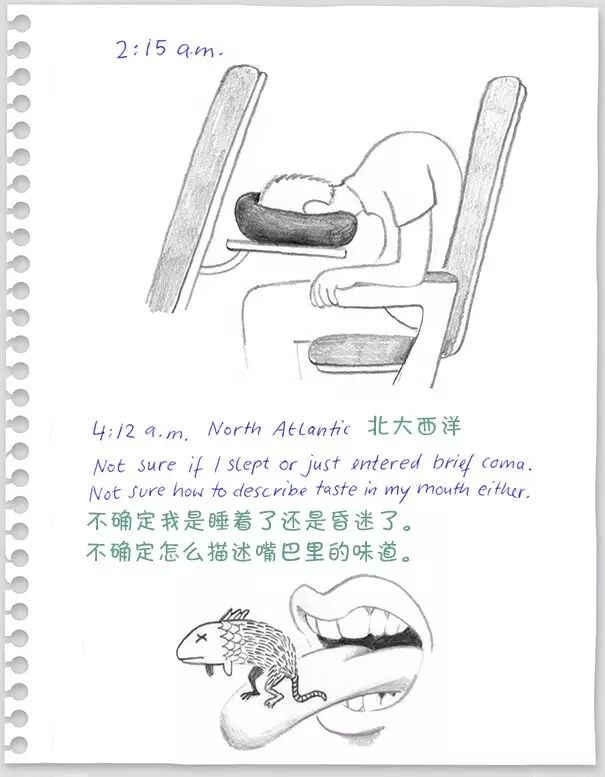 2:15 a.m.
4:12 a.m. North Atlantic 北大西洋
Not sure if I slept or just entered brief coma.
Not sure how to describe taste in my mouth either.
不确定我是睡着了还是昏迷了。
不确定怎么描述嘴巴里的味道。